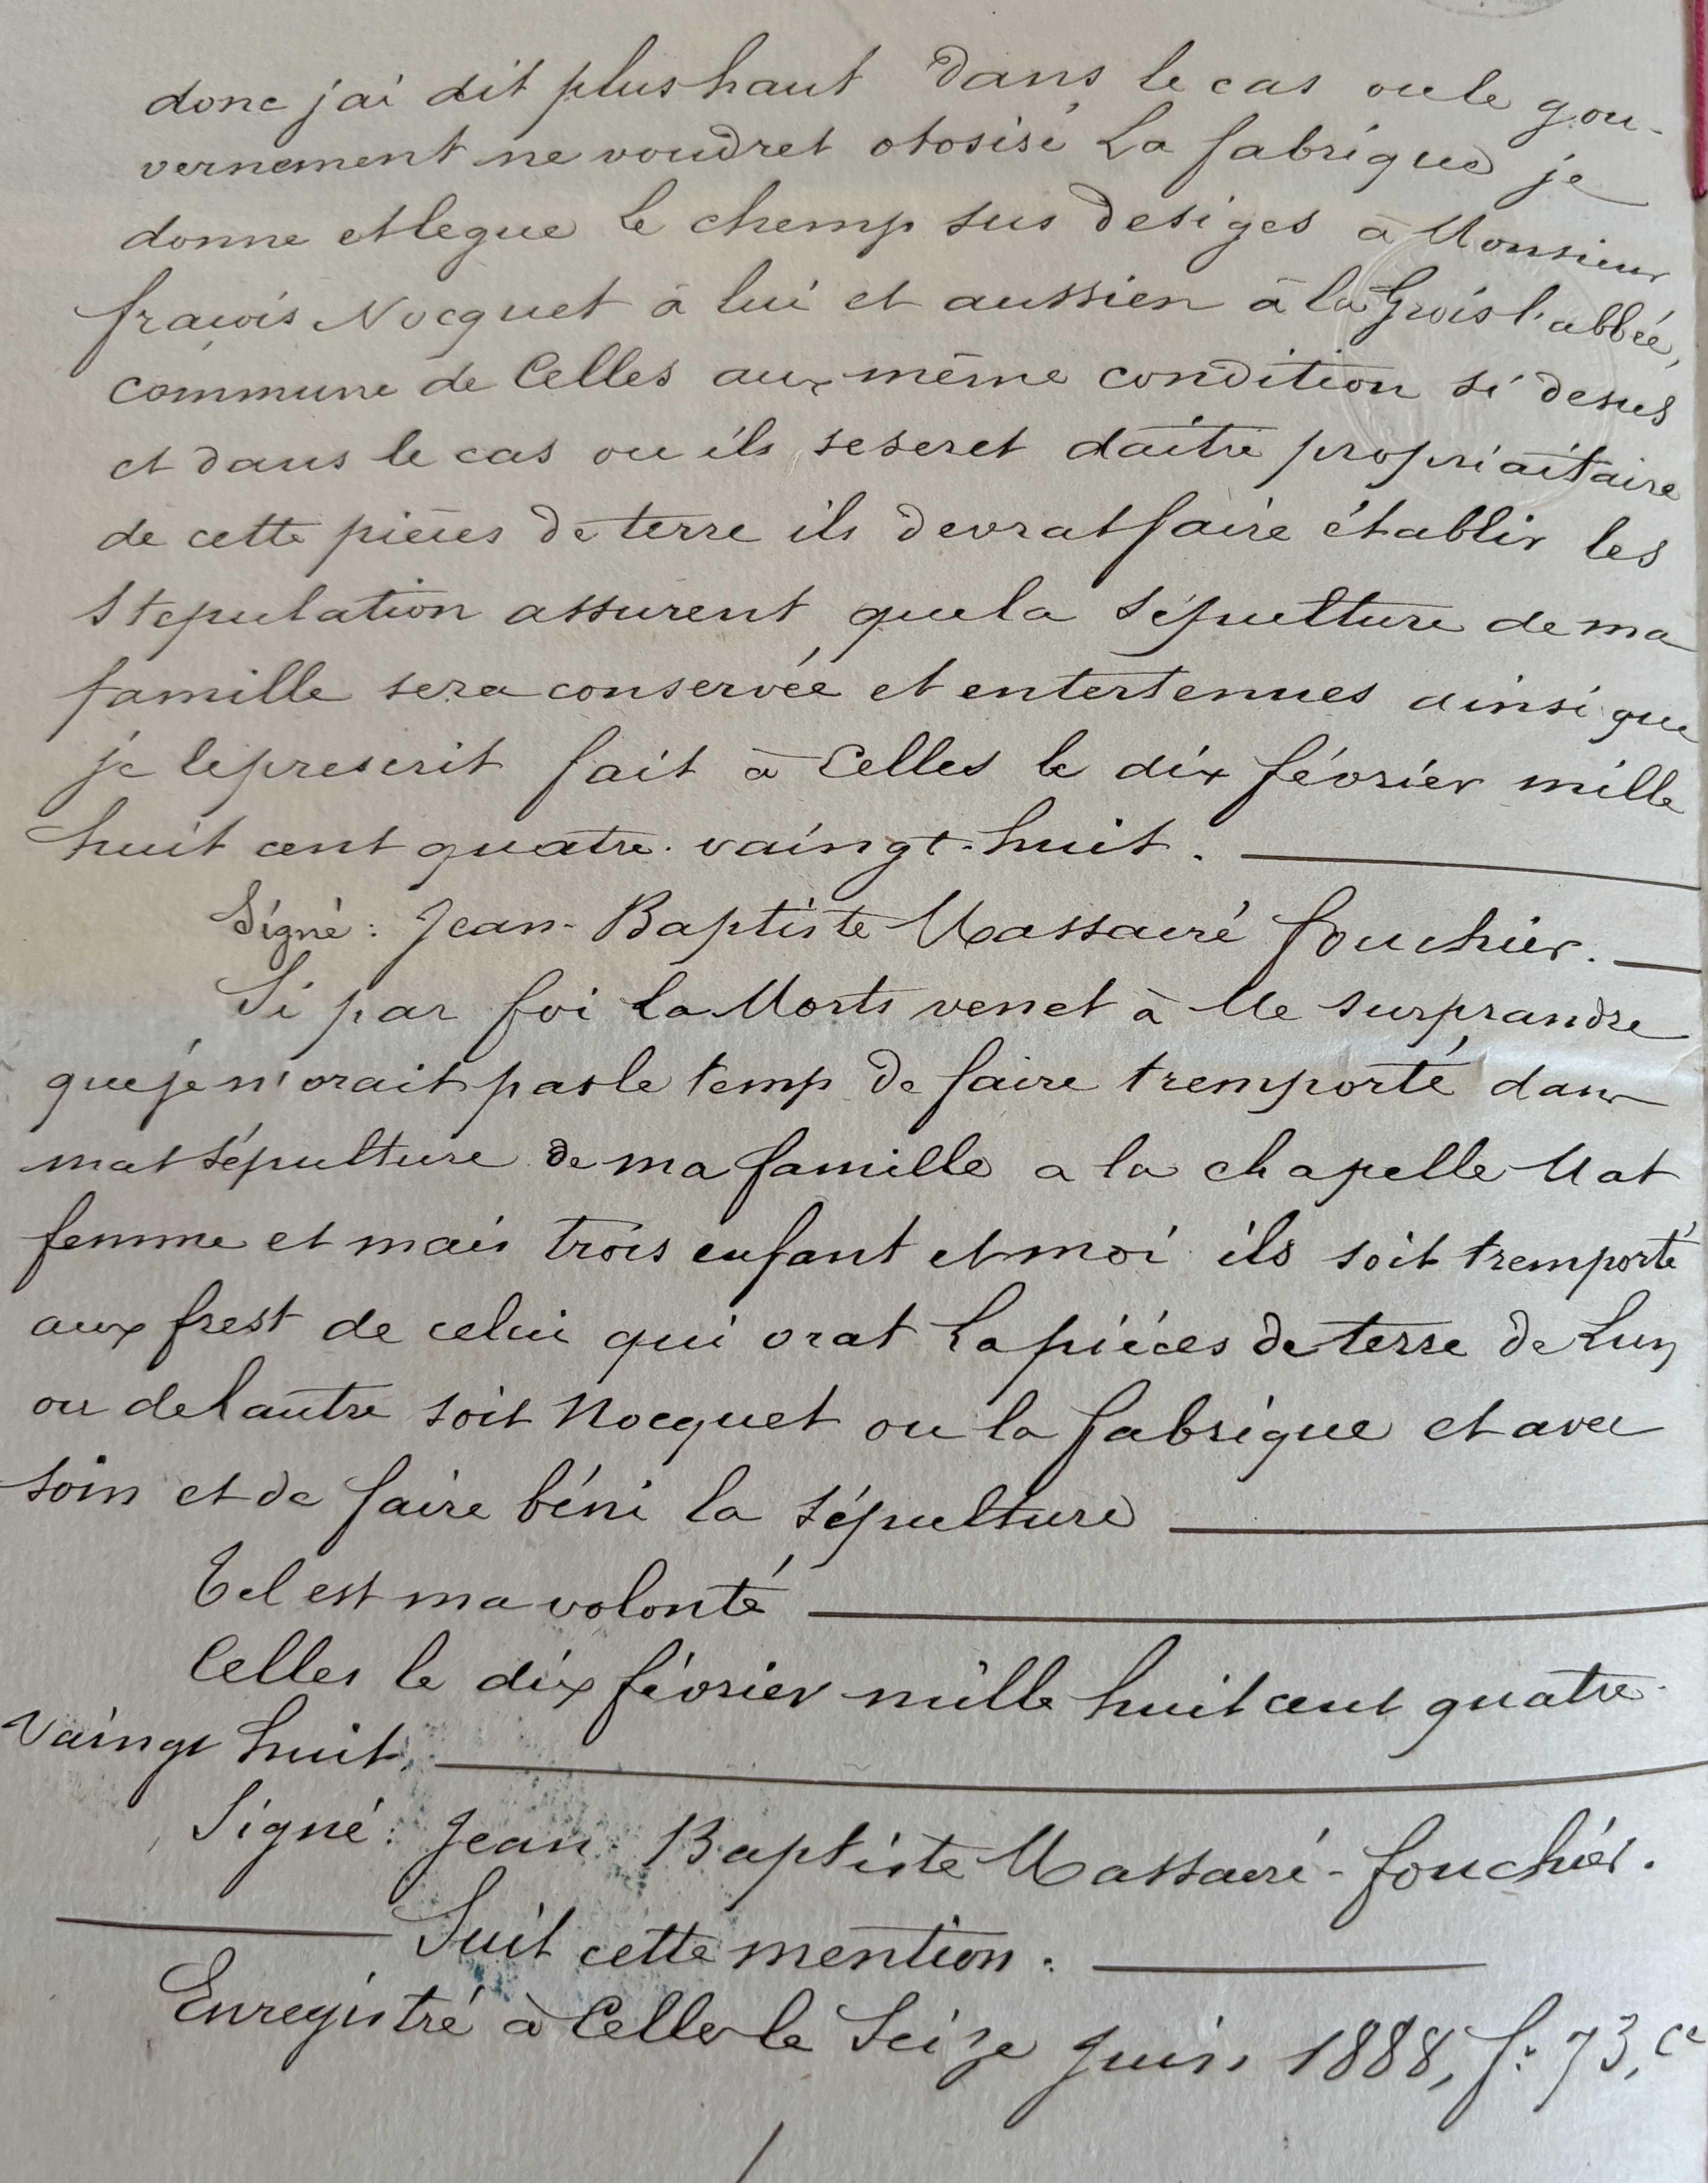 donc j'ai dit plus haut Dans le cas ou le gou-
vernement ne voudret otosisé La fabrique je
donne et legue le chemp sus desiges à Monsieur
francois Nocquet à lui et aussien à la Groisl'abbée,
commune de Celles aux même condition si desus
et dans le cas ou ils seseret daitre propriaitaire
de cette pièces de terre ils devrat faire établir les
stepulation assurent que la sépulture de ma
famille sera conservée et entertenues ainsi que
je le prescrit fait à Celles le dix février mille
huit cent quatre-vaingt-huit.
Signé: Jean-Baptiste Massacré fouchier.
Si par foi la Morts venet à Me surprandre
que je n'orait pas le temp de faire tremporté dans
mat sépulture de ma famille a la chapelle Mat
femme et mais trois enfant et moi ils soit tremporté
aux frest de celui qui orat La pièces de terre de Lun
ou de lautre soit Nocquet ou la fabrique et avec
soin et de faire béni la sépulture
Tel est ma volonté
Celles le dix février mille huit cent quatre-
vaingt huit.
Signé: Jean Baptiste Massacré-fouchier.
Suit cette mention:
Enregistré à Celles le Seize Juin 1888, f: 73, ce